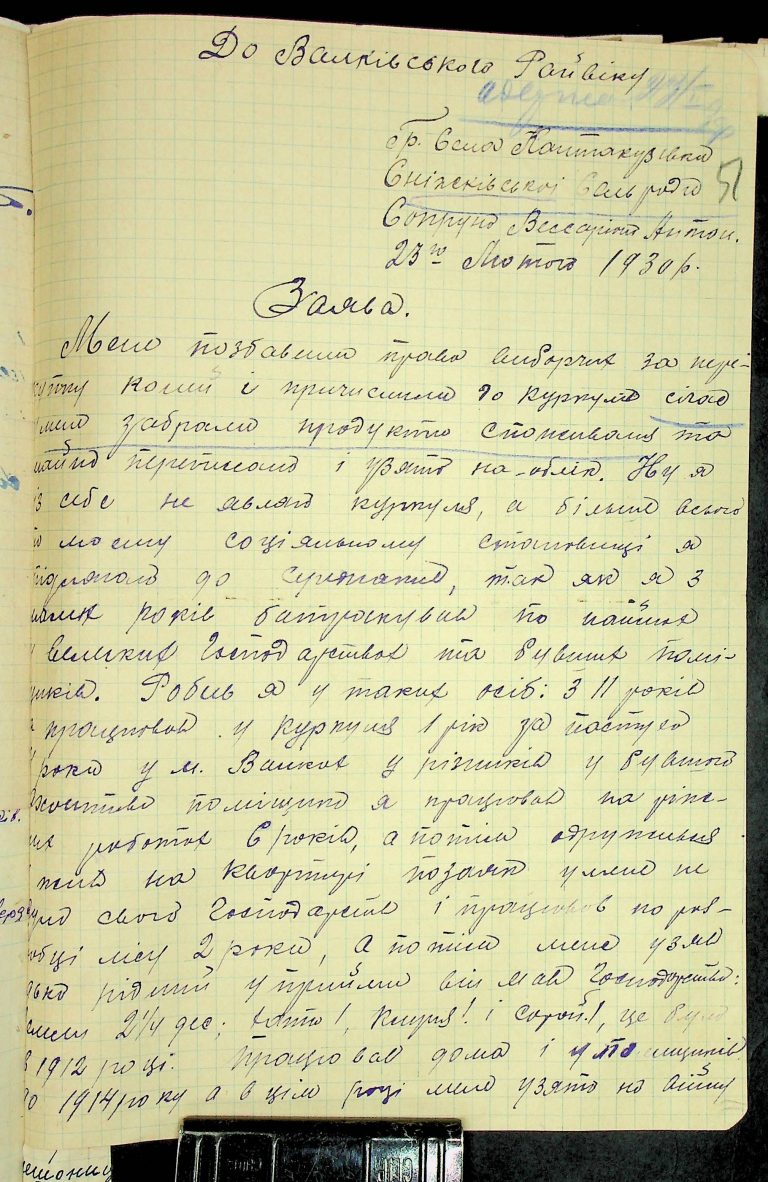 До Валківського Райвіку
Гр. Села Пантакузівка
Сніжківської Сель ради 51
Сопруна Вессаріона Антон.
23го Лютого 1930 р.
Заява.
Мене позбавили права виборчих за пере-
купку коней і причислили до куркулів сілад
у мене забрали продукти споживаня та
майно переписано і узято на-облік. Ну я
із себе не являю куркуля, а більше всього
по моєму соціяльному становищі я
підлягаю до, так як я з
малих років батракував по наймах
у великих Господарствах та бувших помі-
щиків. Робив я у таких осіб: З 11 років
я працював у куркуля 1 рік за пастуха
роки у м. Валках у різників у бувшого
поміщика я працював на ріж-
них роботах 6 років, а потім одружився
жив на квартирі позаяк у мене не
було свого Господарства і працював по роз-
робці лісу 2 роки, а потім мене узяв
дядько рідний у прийми він мав Господарство:
землі 2 1/4 дес; хата 1, клуня 1 і сарай 1, це було
в 1912 році. Працював дома і у поміщиків
до 1914 року а в цім році мене узято на війну